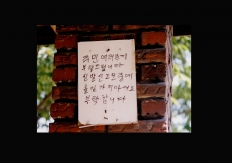 주민 여러분께
부탁드립니다
신발 신고 오줌에
들일 가지마세요
부탁합니다